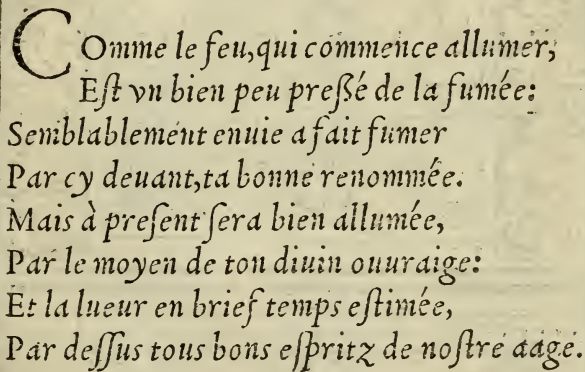 Comme le feu, qui commence allumer,
Eſt vn bien peu preßé de la fumée:
Semblablement enuie a fait fumer
Par cy deuant, ta bonne renommée.
Mais à preſent ſera bien allumée,
Par le moyen de ton diuin ouuraige:
Et la lueur en brief temps eſtimée,
Par deſſus tous bons eſpritz de noſtre aage.